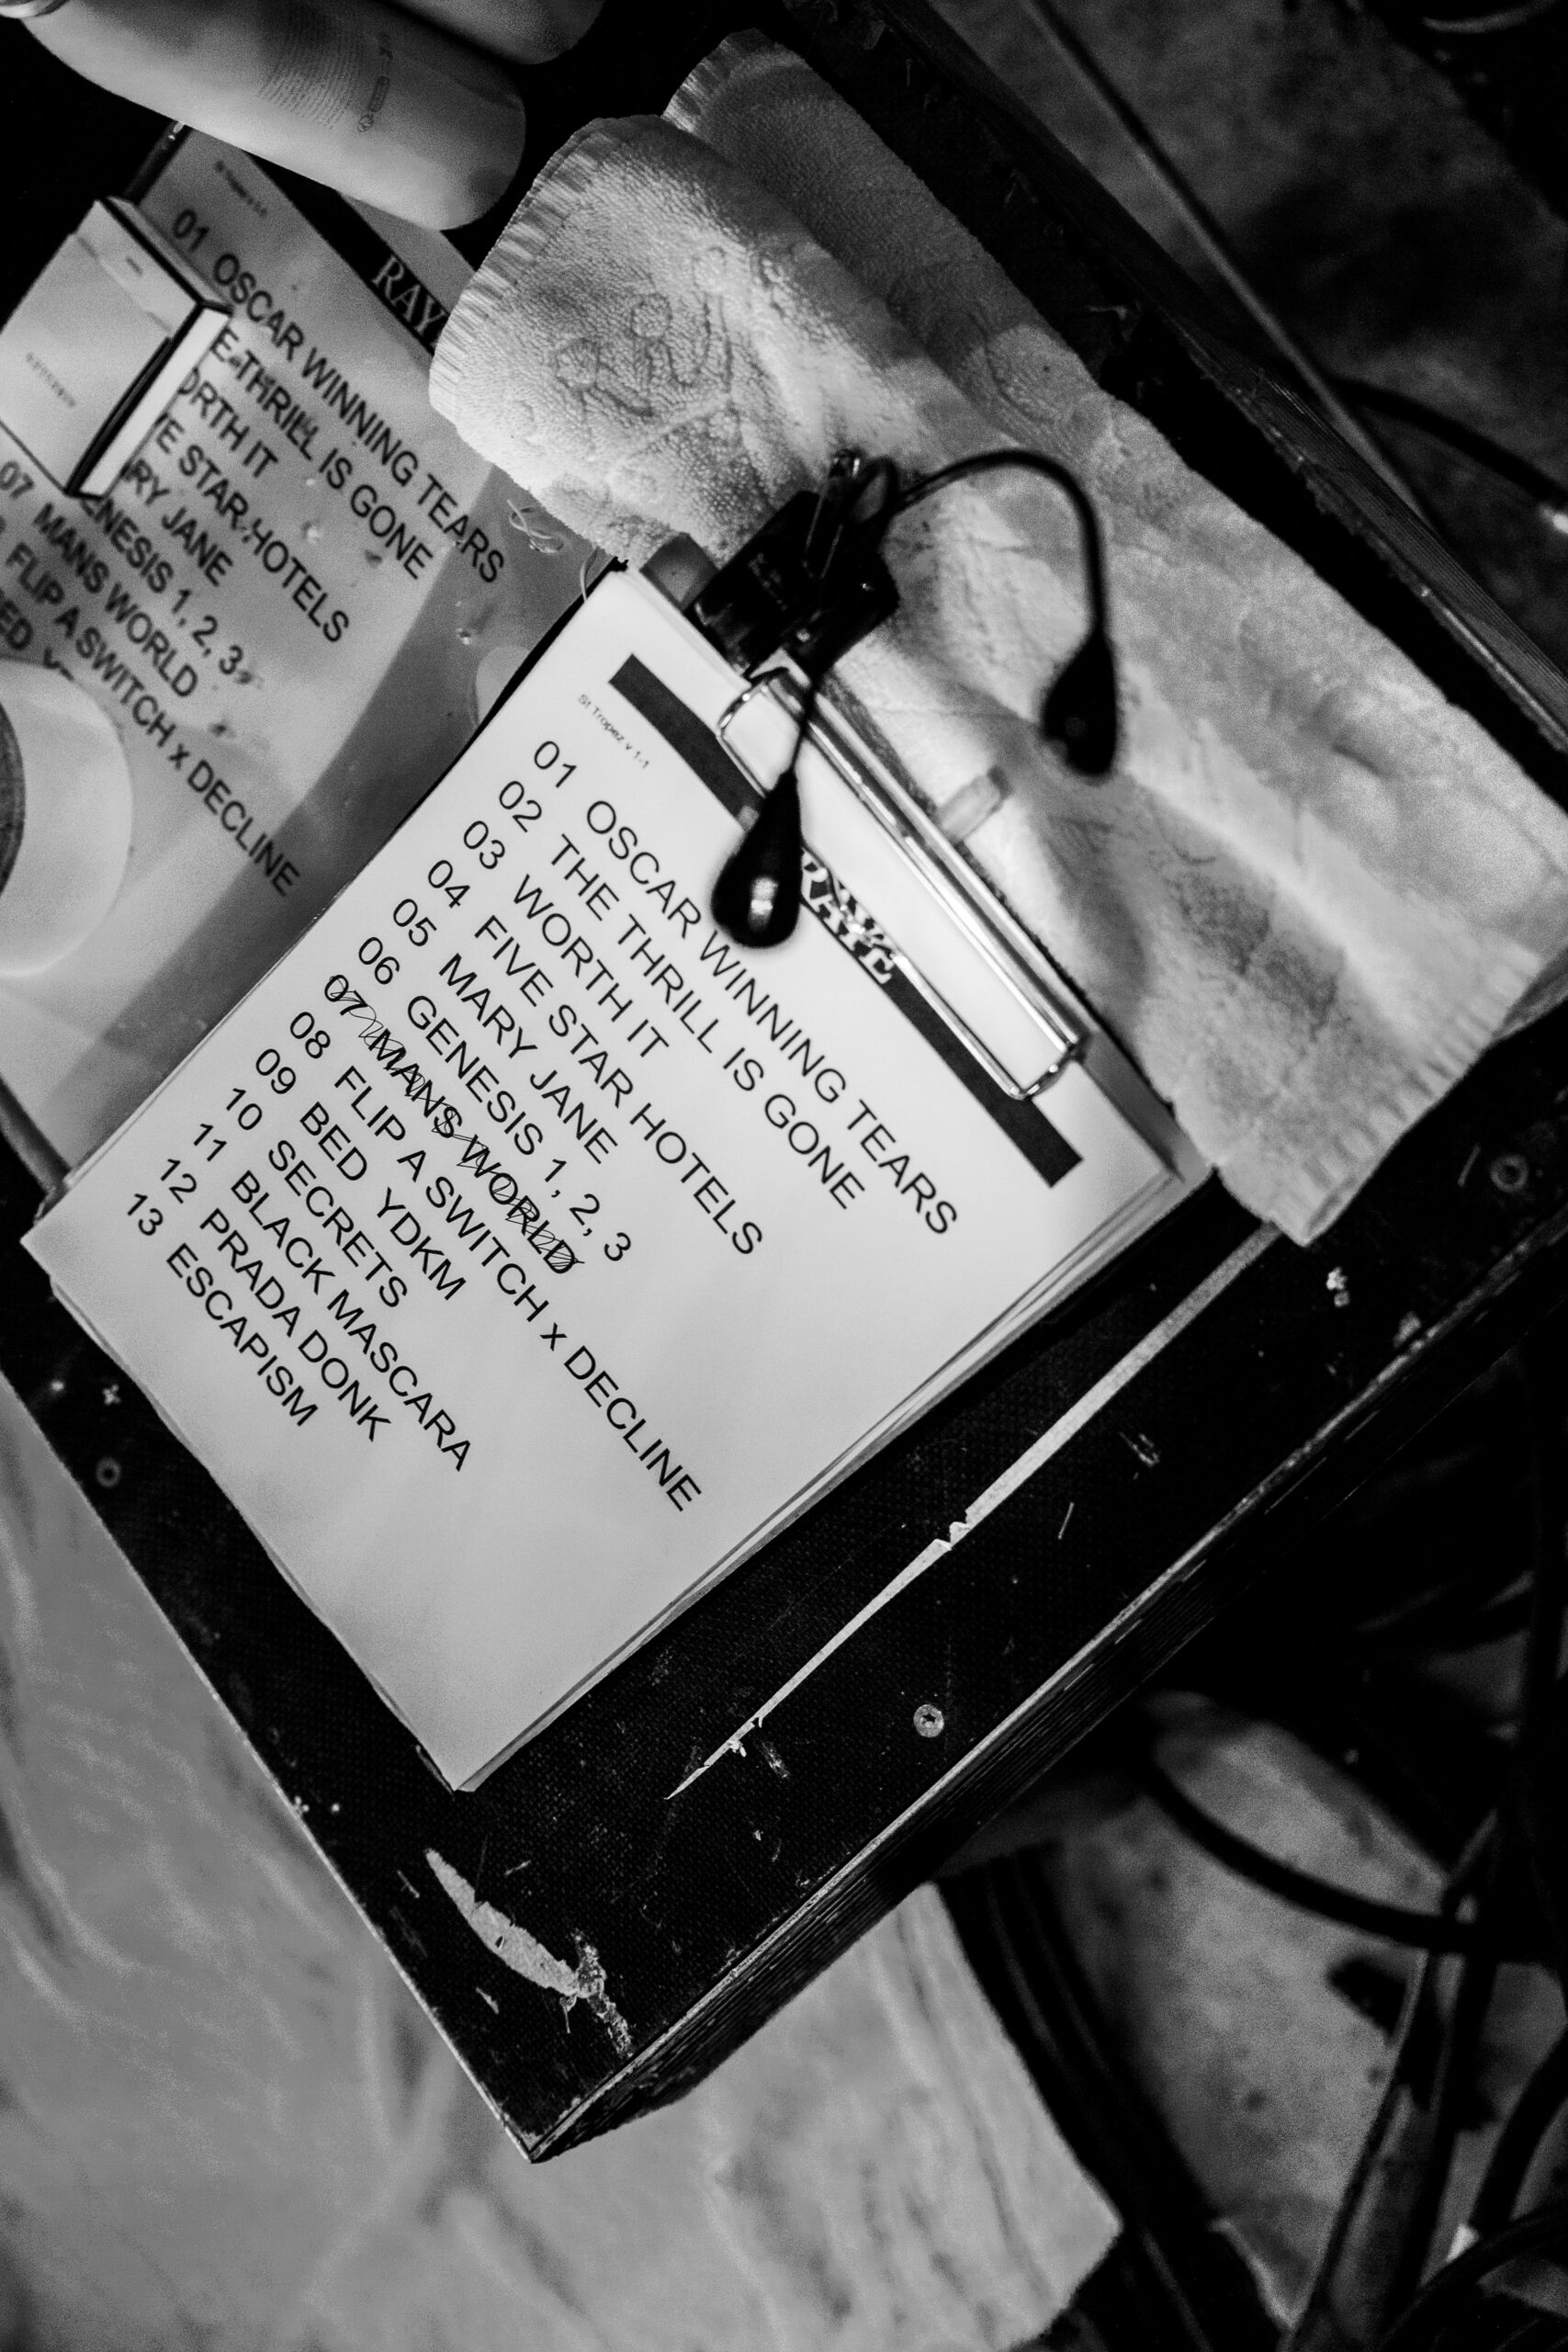 St Tropez v 1-1
RAYE
01 OSCAR WINNING TEARS
02 THE THRILL IS GONE
03 WORTH IT
04 FIVE STAR HOTELS
05 MARY JANE
06 GENESIS 1, 2, 3
07 MANS WORLD
08 FLIP A SWITCH x DECLINE
09 BED YDKM
10 SECRETS
11 BLACK MASCARA
12 PRADA DONK
13 ESCAPISM
RAY
01 OSCAR WINNING TEARS
E THRILL IS GONE
ORTH IT
VE STAR HOTELS
RY JANE
ENESIS 1, 2, 3
07 MANS WORLD
FLIP A SWITCH x DECLINE
ED